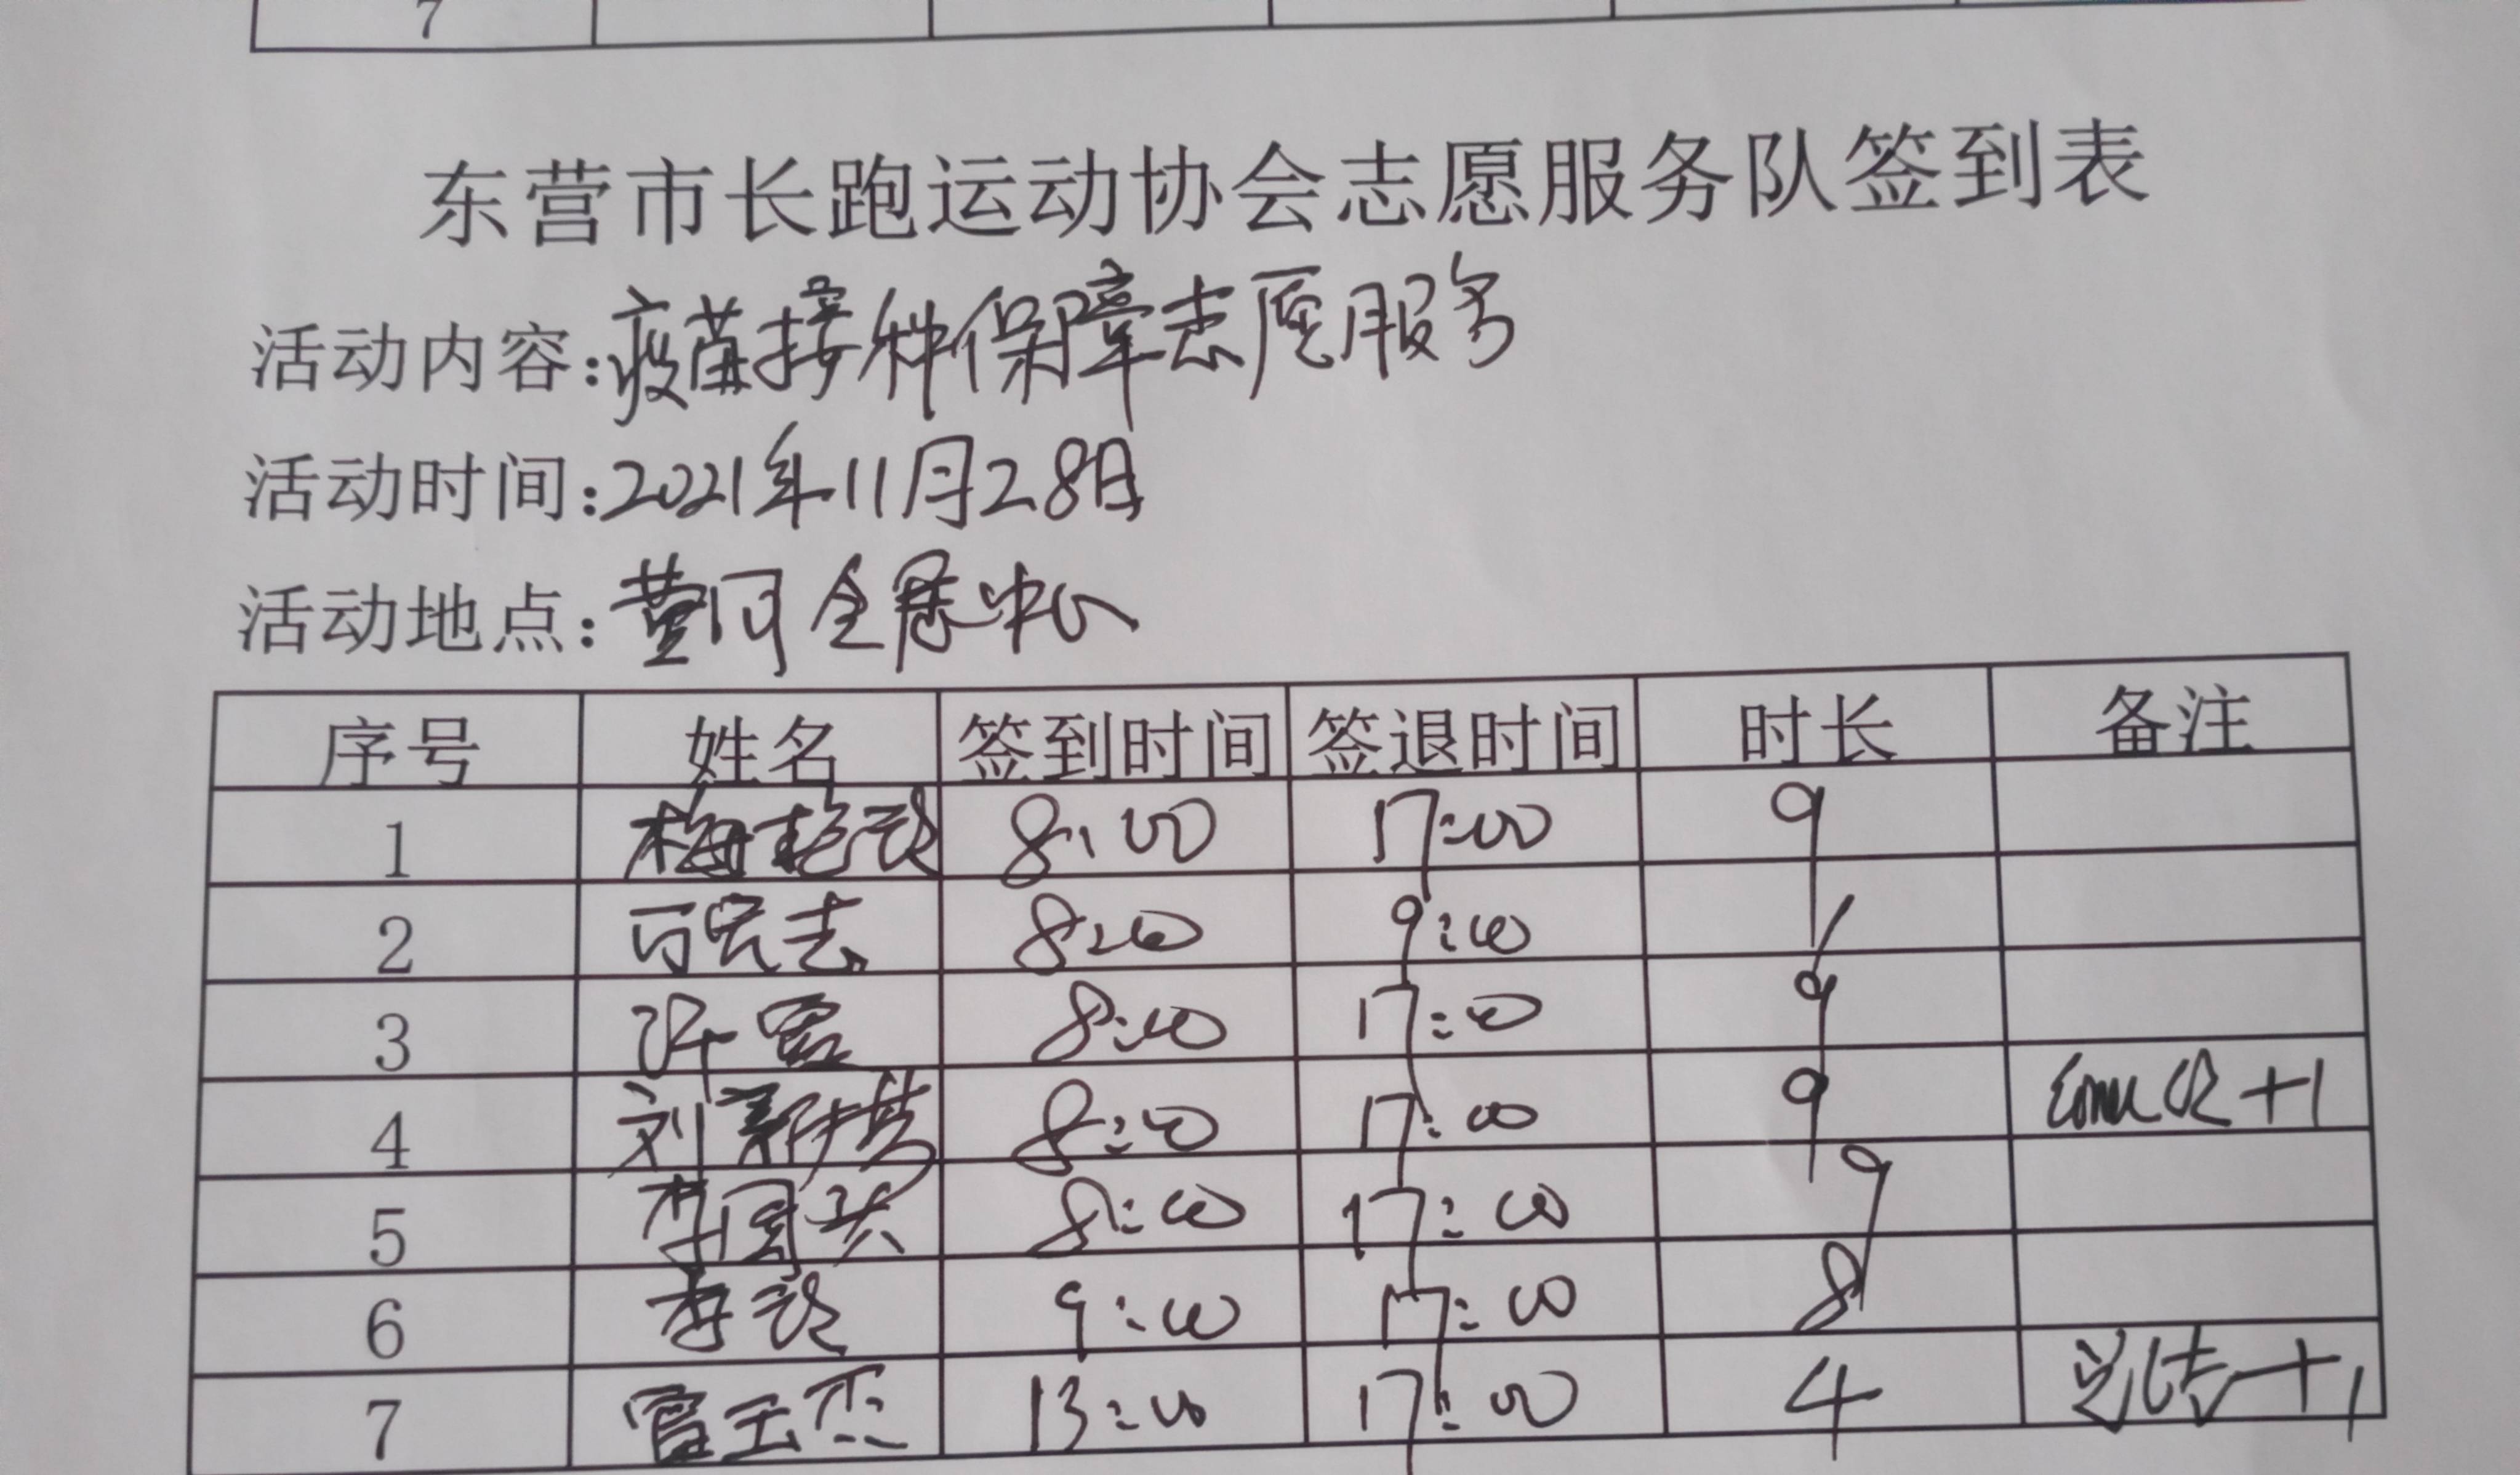 7
东营市长跑运动协会志愿服务队签到表
活动内容:疫苗接种保障志愿服务
活动时间:2021年11月28日
活动地点:黄河会展中心
序号 姓名 签到时间 签退时间 时长 备注
1 梅艳 8:00 17:00 9
2 8:00 9:00 1
3 许 8:00 17:00 9
4 刘新 8:00 17:00 9 +1
5 李国兴 8:00 17:00 9
6 9:00 17:00 8
7 玉杰 13:00 17:00 4 +1